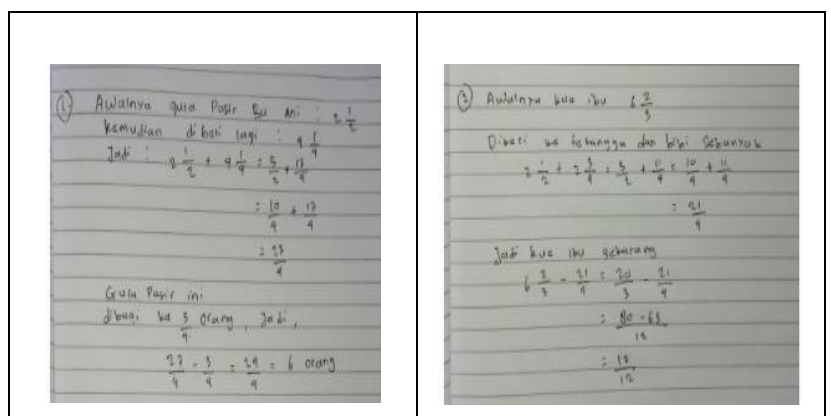 ① Awalnya gula Pasir Bu Ani : 2 1/2
kemudian dibeli lagi : 4 1/4
Jadi : 2 1/2 + 4 1/4 = 5/2 + 17/4
= 10/4 + 17/4
= 27/4
Gula Pasir ini
dibagi ke 3/4 orang, Jadi,
27/4 - 3/4 = 24/4 = 6 orang
② Awalnya kue ibu 6 2/3
Diberi ke tetangga dan bibi Sebanyak
2 1/2 + 2 3/4 = 5/2 + 11/4 = 10/4 + 11/4
= 21/4
Jadi kue ibu sekarang
6 2/3 - 21/4 = 20/3 - 21/4
= 80 - 63/12
= 17/12